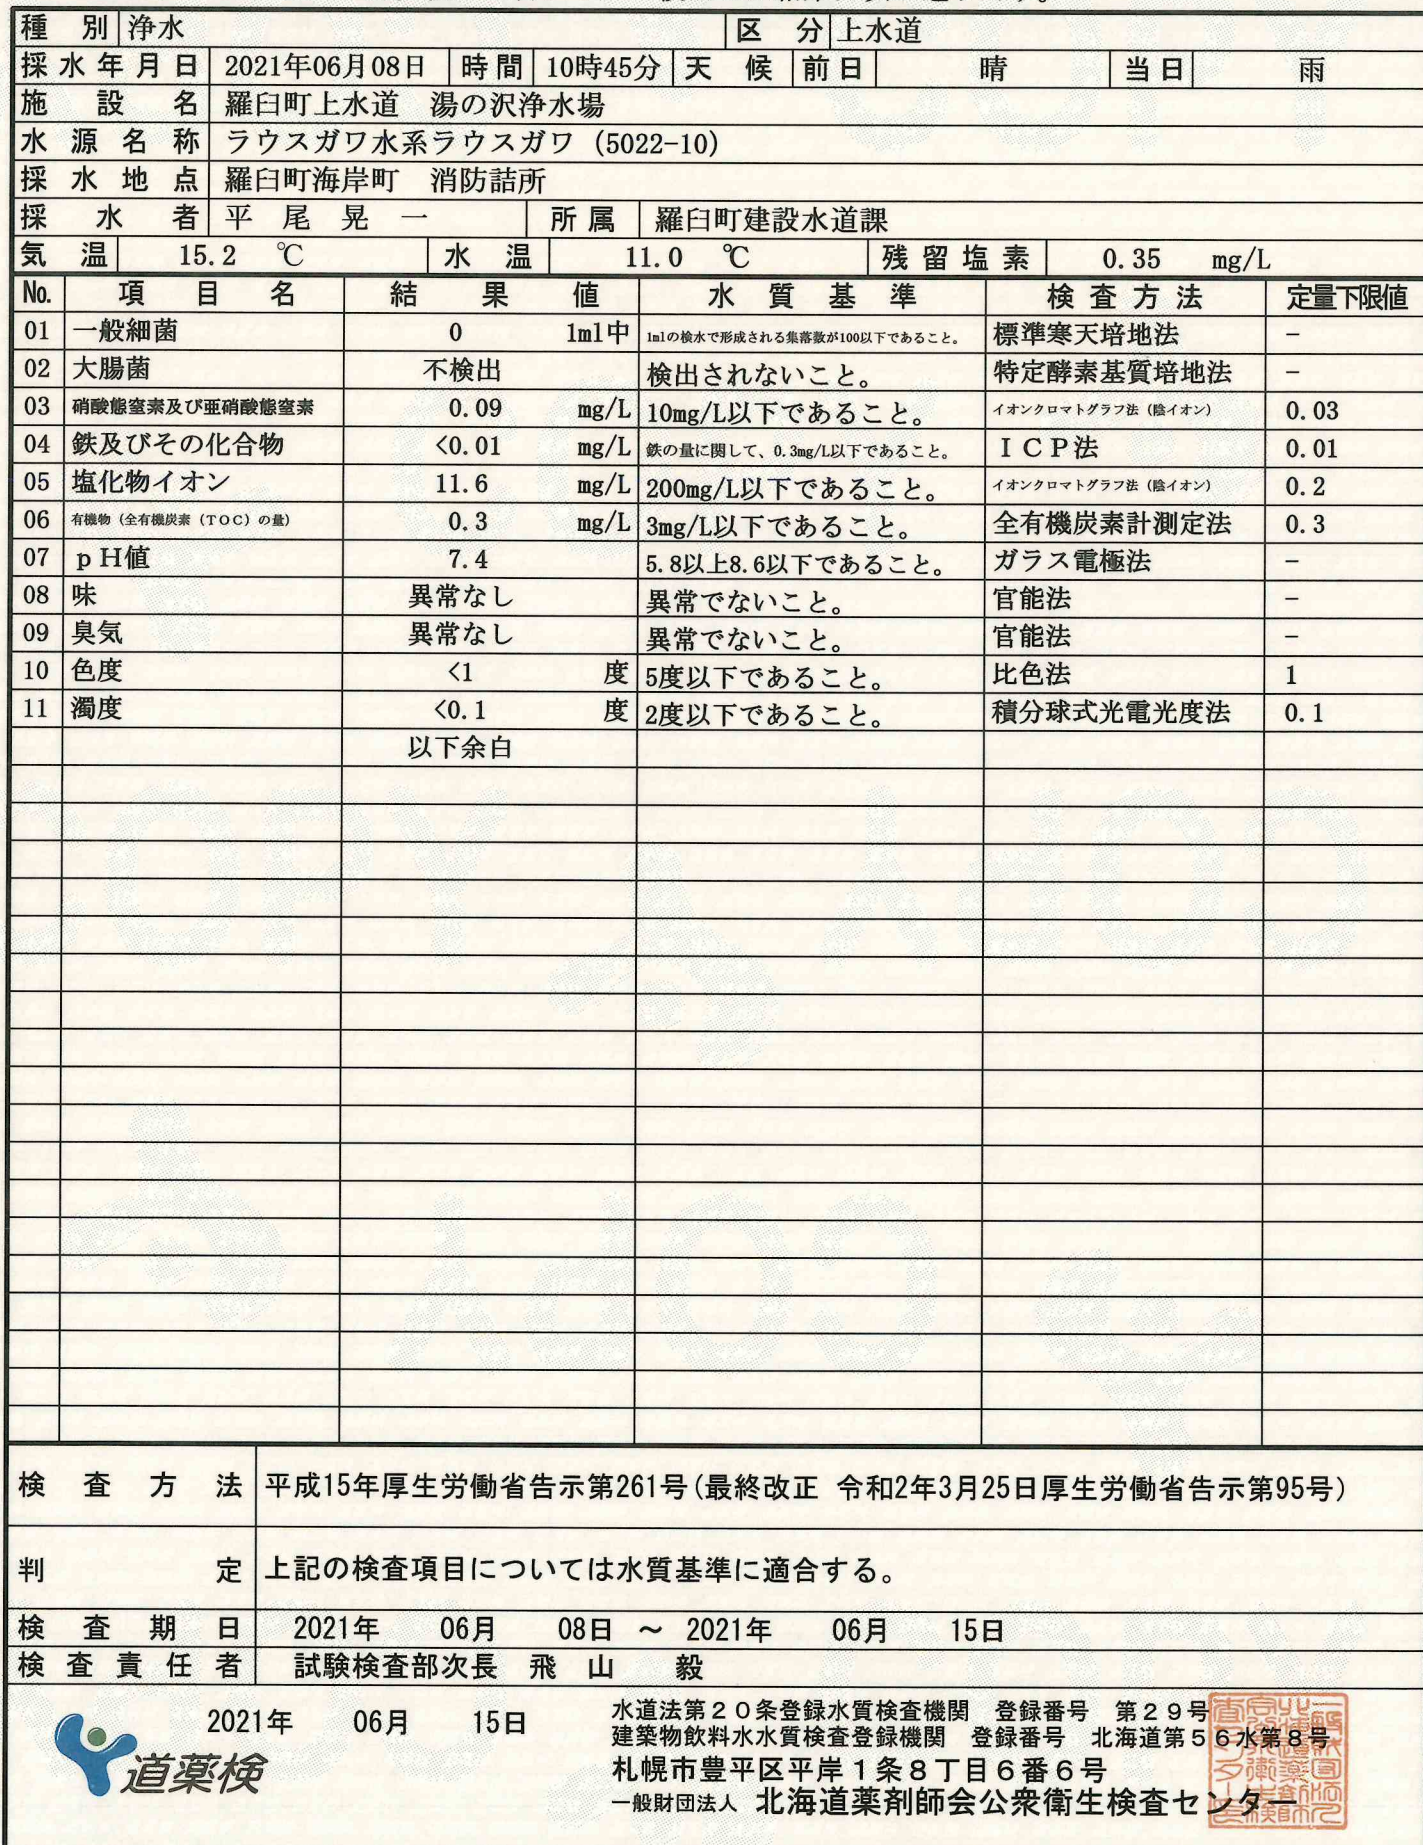 種別 浄水 区分 上水道
採水年月日 2021年06月08日 時間 10時45分 天候 前日 晴 当日 雨
施設名 羅臼町上水道 湯の沢浄水場
水源名称 ラウスガワ水系ラウスガワ (5022-10)
採水地点 羅臼町海岸町 消防詰所
採水者 平尾晃一 所属 羅臼町建設水道課
気温 15.2 ℃ 水温 11.0 ℃ 残留塩素 0.35 mg/L
No. 項目名 結果値 水質基準 検査方法 定量下限値
01 一般細菌 0 1ml中 1mlの検水で形成される集落数が100以下であること。 標準寒天培地法 −
02 大腸菌 不検出 検出されないこと。 特定酵素基質培地法 −
03 硝酸態窒素及び亜硝酸態窒素 0.09 mg/L 10mg/L以下であること。 イオンクロマトグラフ法（陰イオン） 0.03
04 鉄及びその化合物 <0.01 mg/L 鉄の量に関して、0.3mg/L以下であること。 ＩＣＰ法 0.01
05 塩化物イオン 11.6 mg/L 200mg/L以下であること。 イオンクロマトグラフ法（陰イオン） 0.2
06 有機物（全有機炭素（ＴＯＣ）の量） 0.3 mg/L 3mg/L以下であること。 全有機炭素計測定法 0.3
07 ｐＨ値 7.4 5.8以上8.6以下であること。 ガラス電極法 −
08 味 異常なし 異常でないこと。 官能法 −
09 臭気 異常なし 異常でないこと。 官能法 −
10 色度 <1 度 5度以下であること。 比色法 1
11 濁度 <0.1 度 2度以下であること。 積分球式光電光度法 0.1
以下余白
検査方法 平成15年厚生労働省告示第261号(最終改正 令和2年3月25日厚生労働省告示第95号)
判定 上記の検査項目については水質基準に適合する。
検査期日 2021年 06月 08日 ～ 2021年 06月 15日
検査責任者 試験検査部次長 飛山 毅
2021年 06月 15日
道薬検
水道法第２０条登録水質検査機関 登録番号 第２９号
建築物飲料水水質検査登録機関 登録番号 北海道第５６水第８号
札幌市豊平区平岸１条８丁目６番６号
一般財団法人 北海道薬剤師会公衆衛生検査センター